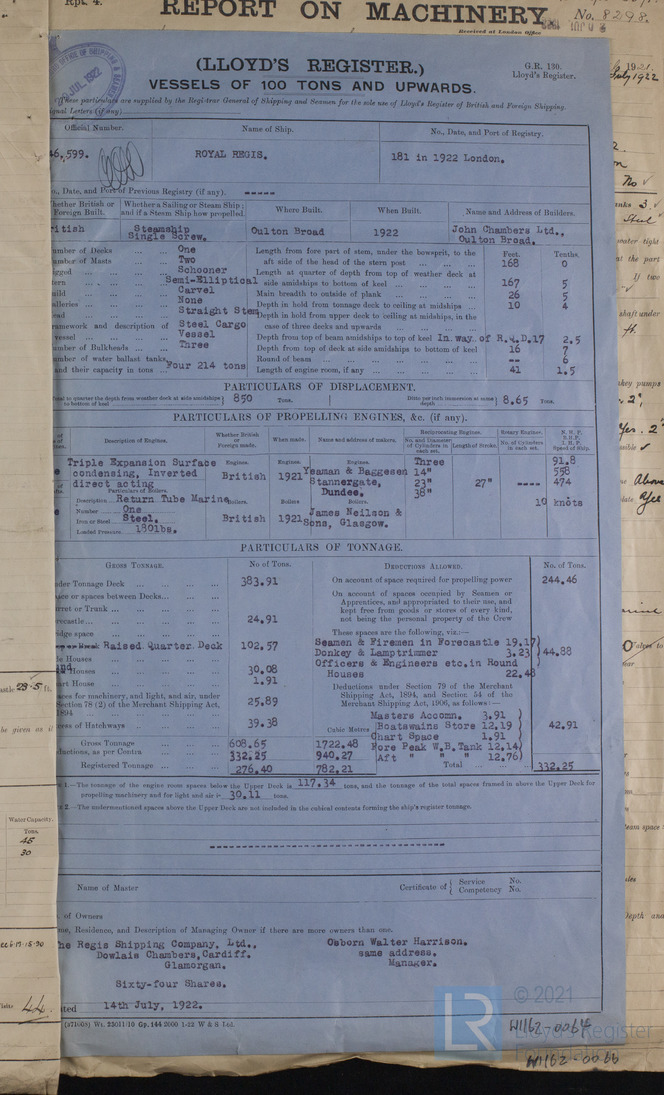 Rpt. 4.
REPORT ON MACHINERY
No. 8298.
Received at London Office
(LLOYD'S REGISTER.)
G.R. 130.
Lloyd's Register.
VESSELS OF 100 TONS AND UPWARDS.
These particulars are supplied by the Registrar General of Shipping and Seamen for the sole use of Lloyd's Register of British and Foreign Shipping.
gnal Letters (if any)
Official Number. Name of Ship. No., Date, and Port of Registry.
46,599. ROYAL REGIS. 181 in 1922 London.
o., Date, and Port of Previous Registry (if any). -----
hether British or Foreign Built. Whether a Sailing or Steam Ship; and if a Steam Ship how propelled. Where Built. When Built. Name and Address of Builders.
ritish Steamship Single Screw. Oulton Broad 1922 John Chambers Ltd., Oulton Broad.
umber of Decks ... One
umber of Masts ... Two
gged ... Schooner
ern ... Semi-Elliptical
uild ... Carvel
alleries ... None
ead ... Straight Stem
ramework and description of vessel ... Steel Cargo Vessel
umber of Bulkheads ... Three
umber of water ballast tanks, and their capacity in tons ... Four 214 tons
Feet. Tenths.
Length from fore part of stem, under the bowsprit, to the aft side of the head of the stern post ... 168 0
Length at quarter of depth from top of weather deck at side amidships to bottom of keel ... 167 5
Main breadth to outside of plank ... 26 5
Depth in hold from tonnage deck to ceiling at midships ... 10 4
Depth in hold from upper deck to ceiling at midships, in the case of three decks and upwards ...
Depth from top of beam amidships to top of keel In way of R.Q.D. 17 2.5
Depth from top of deck at side amidships to bottom of keel 16 7
Round of beam ... -- 6
Length of engine room, if any ... 41 1.5
PARTICULARS OF DISPLACEMENT.
otal to quarter the depth from weather deck at side amidships to bottom of keel ... 850 Tons. Ditto per inch immersion at same depth ... 8.65 Tons.
PARTICULARS OF PROPELLING ENGINES, &c. (if any).
Description of Engines. Whether British or Foreign made. When made. Name and address of makers. Reciprocating Engines. Rotary Engines. N. H. P. B.H.P. I. H. P. Speed of Ship.
No. and Diameter of Cylinders in each set. Length of Stroke. No. of Cylinders in each set.
Triple Expansion Surface condensing, Inverted direct acting
Engines. British
Engines. 1921
Engines. Yeaman & Baggesen Stannergate, Dundee.
Three 14" 23" 38"
27"
----
91.8
558
474
10 knots
Particulars of Boilers.
Description Return Tube Marine
Number One
Iron or Steel Steel.
Loaded Pressure 180lbs.
Boilers. British
Boilers 1921
Boilers. James Neilson & Sons, Glasgow.
PARTICULARS OF TONNAGE.
GROSS TONNAGE. No of Tons. DEDUCTIONS ALLOWED. No. of Tons.
nder Tonnage Deck ... 383.91
pace or spaces between Decks...
urret or Trunk ...
recastle... 24.91
ridge space
Raised Quarter Deck 102.57
de Houses
Houses 30.08
art House 1.91
aces for machinery, and light, and air, under Section 78 (2) of the Merchant Shipping Act, 1894 ... 25.89
cess of Hatchways ... 39.38
Cubic Metres
Gross Tonnage 608.65 1722.48
eductions, as per Contra 332.25 940.27
Registered Tonnage 276.40 782.21
On account of space required for propelling power 244.46
On account of spaces occupied by Seamen or Apprentices, and appropriated to their use, and kept free from goods or stores of every kind, not being the personal property of the Crew
These spaces are the following, viz.:—
Seamen & Firemen in Forecastle 19.17
Donkey & Lamptrimmer 3.23
Officers & Engineers etc.in Round Houses 22.48
44.88
Deductions under Section 79 of the Merchant Shipping Act, 1894, and Section 54 of the Merchant Shipping Act, 1906, as follows:—
Masters Accomn. 3.91
Boatswains Store 12.19
Chart Space 1.91
Fore Peak W.B.Tank 12.14
Aft " " " 12.76
42.91
Total ... 332.25
1.—The tonnage of the engine room spaces below the Upper Deck is 117.34 tons, and the tonnage of the total spaces framed in above the Upper Deck for propelling machinery and for light and air is 39.11 tons.
2.—The undermentioned spaces above the Upper Deck are not included in the cubical contents forming the ship's register tonnage.
Name of Master Certificate of { Service No. Competency No.
of Owners
me, Residence, and Description of Managing Owner if there are more owners than one.
he Regis Shipping Company, Ltd.,
Dowlais Chambers, Cardiff.
Glamorgan.
Sixty-four Shares.
Osborn Walter Harrison.
same address.
Manager.
ated 14th July, 1922.
(571005) Wt. 23011/10 Gp. 144 2000 1-22 W & S Ltd.
LR © 2021
Lloyd's Register
W1162-0064
W1162-0066
Water Capacity.
Tons.
45
30
44.